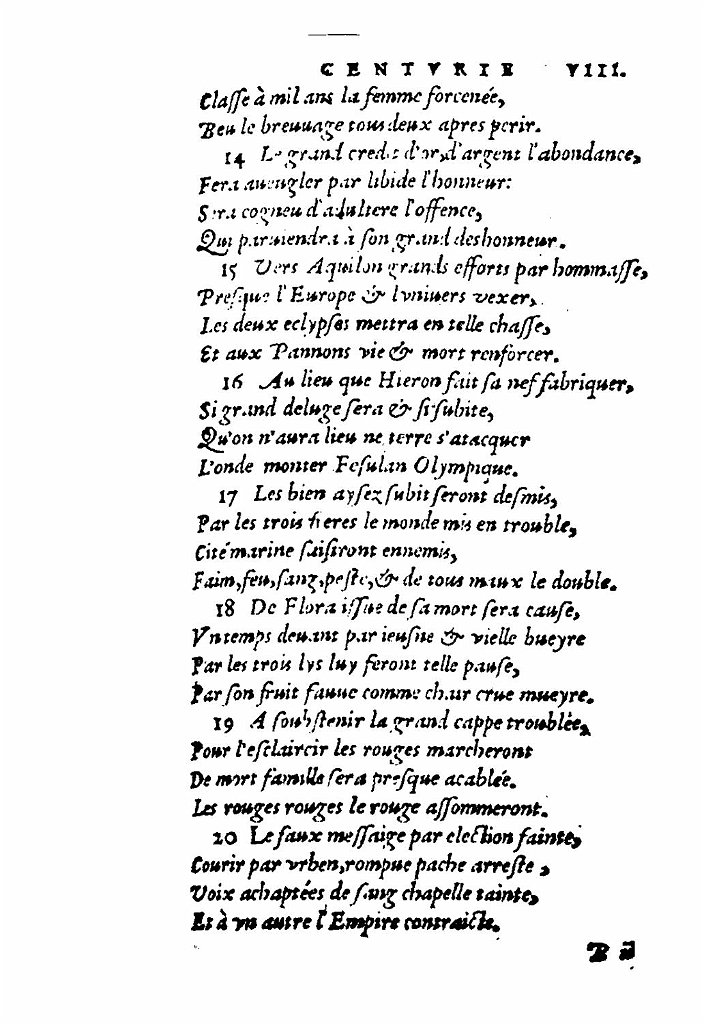 CENTVRIE VIII.
Claſſe à mil ans la femme forcenée,
Beu le breuuage tous deux apres perir.
14 Le grand credit d'or, d'argent l'abondance,
Fera aueugler par libide l'honneur:
Sera cogneu d'adultere l'offence,
Qui paruiendra à ſon grand deshonneur.
15 Vers Aquilon grands efforts par hommaſſe,
Preſque l'Europe & l'vniuers vexer,
Les deux eclypſes mettra en telle chaſſe,
Et aux Pannons vie & mort renforcer.
16 Au lieu que Hieron fait ſa nef fabriquer,
Si grand deluge ſera & ſi ſubite,
Qu'on n'aura lieu ne terre s'atacquer
L'onde monter Feſulan Olympique.
17 Les bien ayſez ſubit ſeront deſmis,
Par les trois freres le monde mis en trouble,
Cité marine ſaiſiront ennemis,
Faim, feu, ſang, peſte, & de tous maux le double.
18 De Flora iſſue de ſa mort ſera cauſe,
Vn temps deuant par ieuſne & vielle bueyre
Par les trois lys luy feront telle pauſe,
Par ſon fruit ſauue comme chair crue mueyre.
19 A ſoubſtenir la grand cappe troublée,
Pour l'eſclaircir les rouges marcheront
De mort famille ſera preſque acablée.
Les rouges rouges le rouge aſſommeront.
20 Le faux meſſaige par election fainte,
Courir par vrben, rompue pache arreſte,
Voix achaptées de ſang chapelle tainte,
Et à vn autre l'Empire contraicte.
B ii